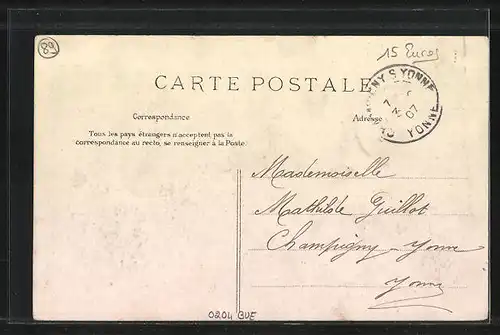 89
15 Euros
CARTE POSTALE
NY S YONNE
7
07
YONNE
Correspondance
Adresse
Tous les pays étrangers n'acceptent pas la
correspondance au recto, se renseigner à la Poste.
Mademoiselle
Mathilde Guillot
Champigny - Yonne
Yonne
0204 BUE